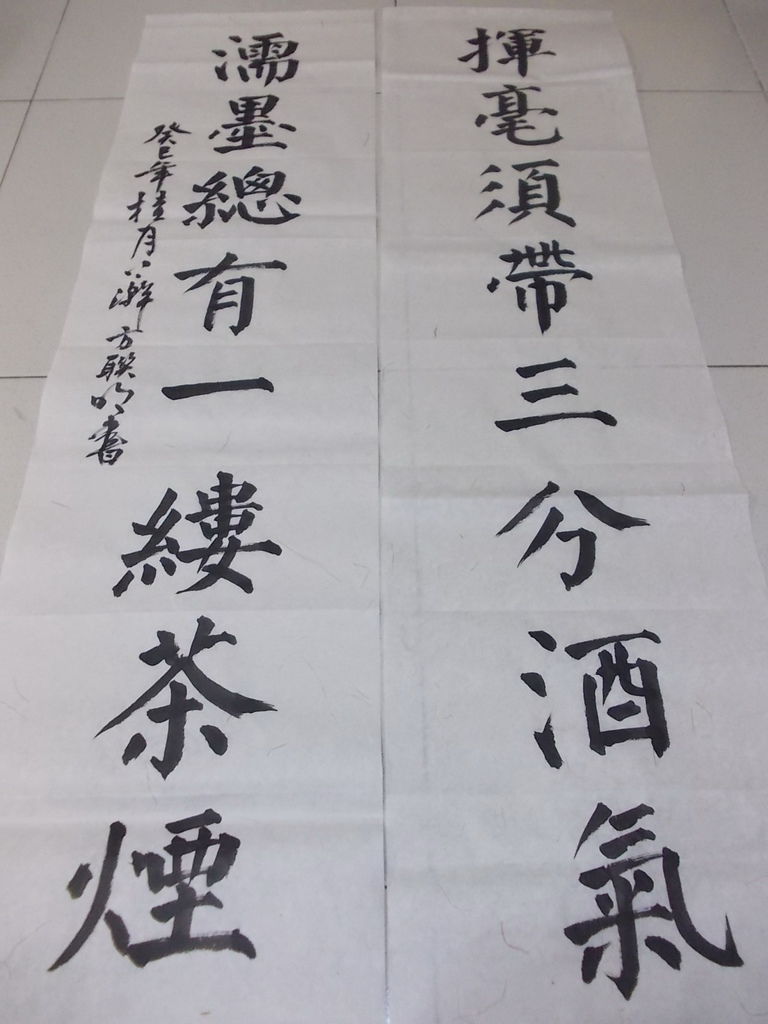 揮毫須帶三分酒氣
濡墨總有一縷茶煙
癸巳年桂月八澥方聯明書